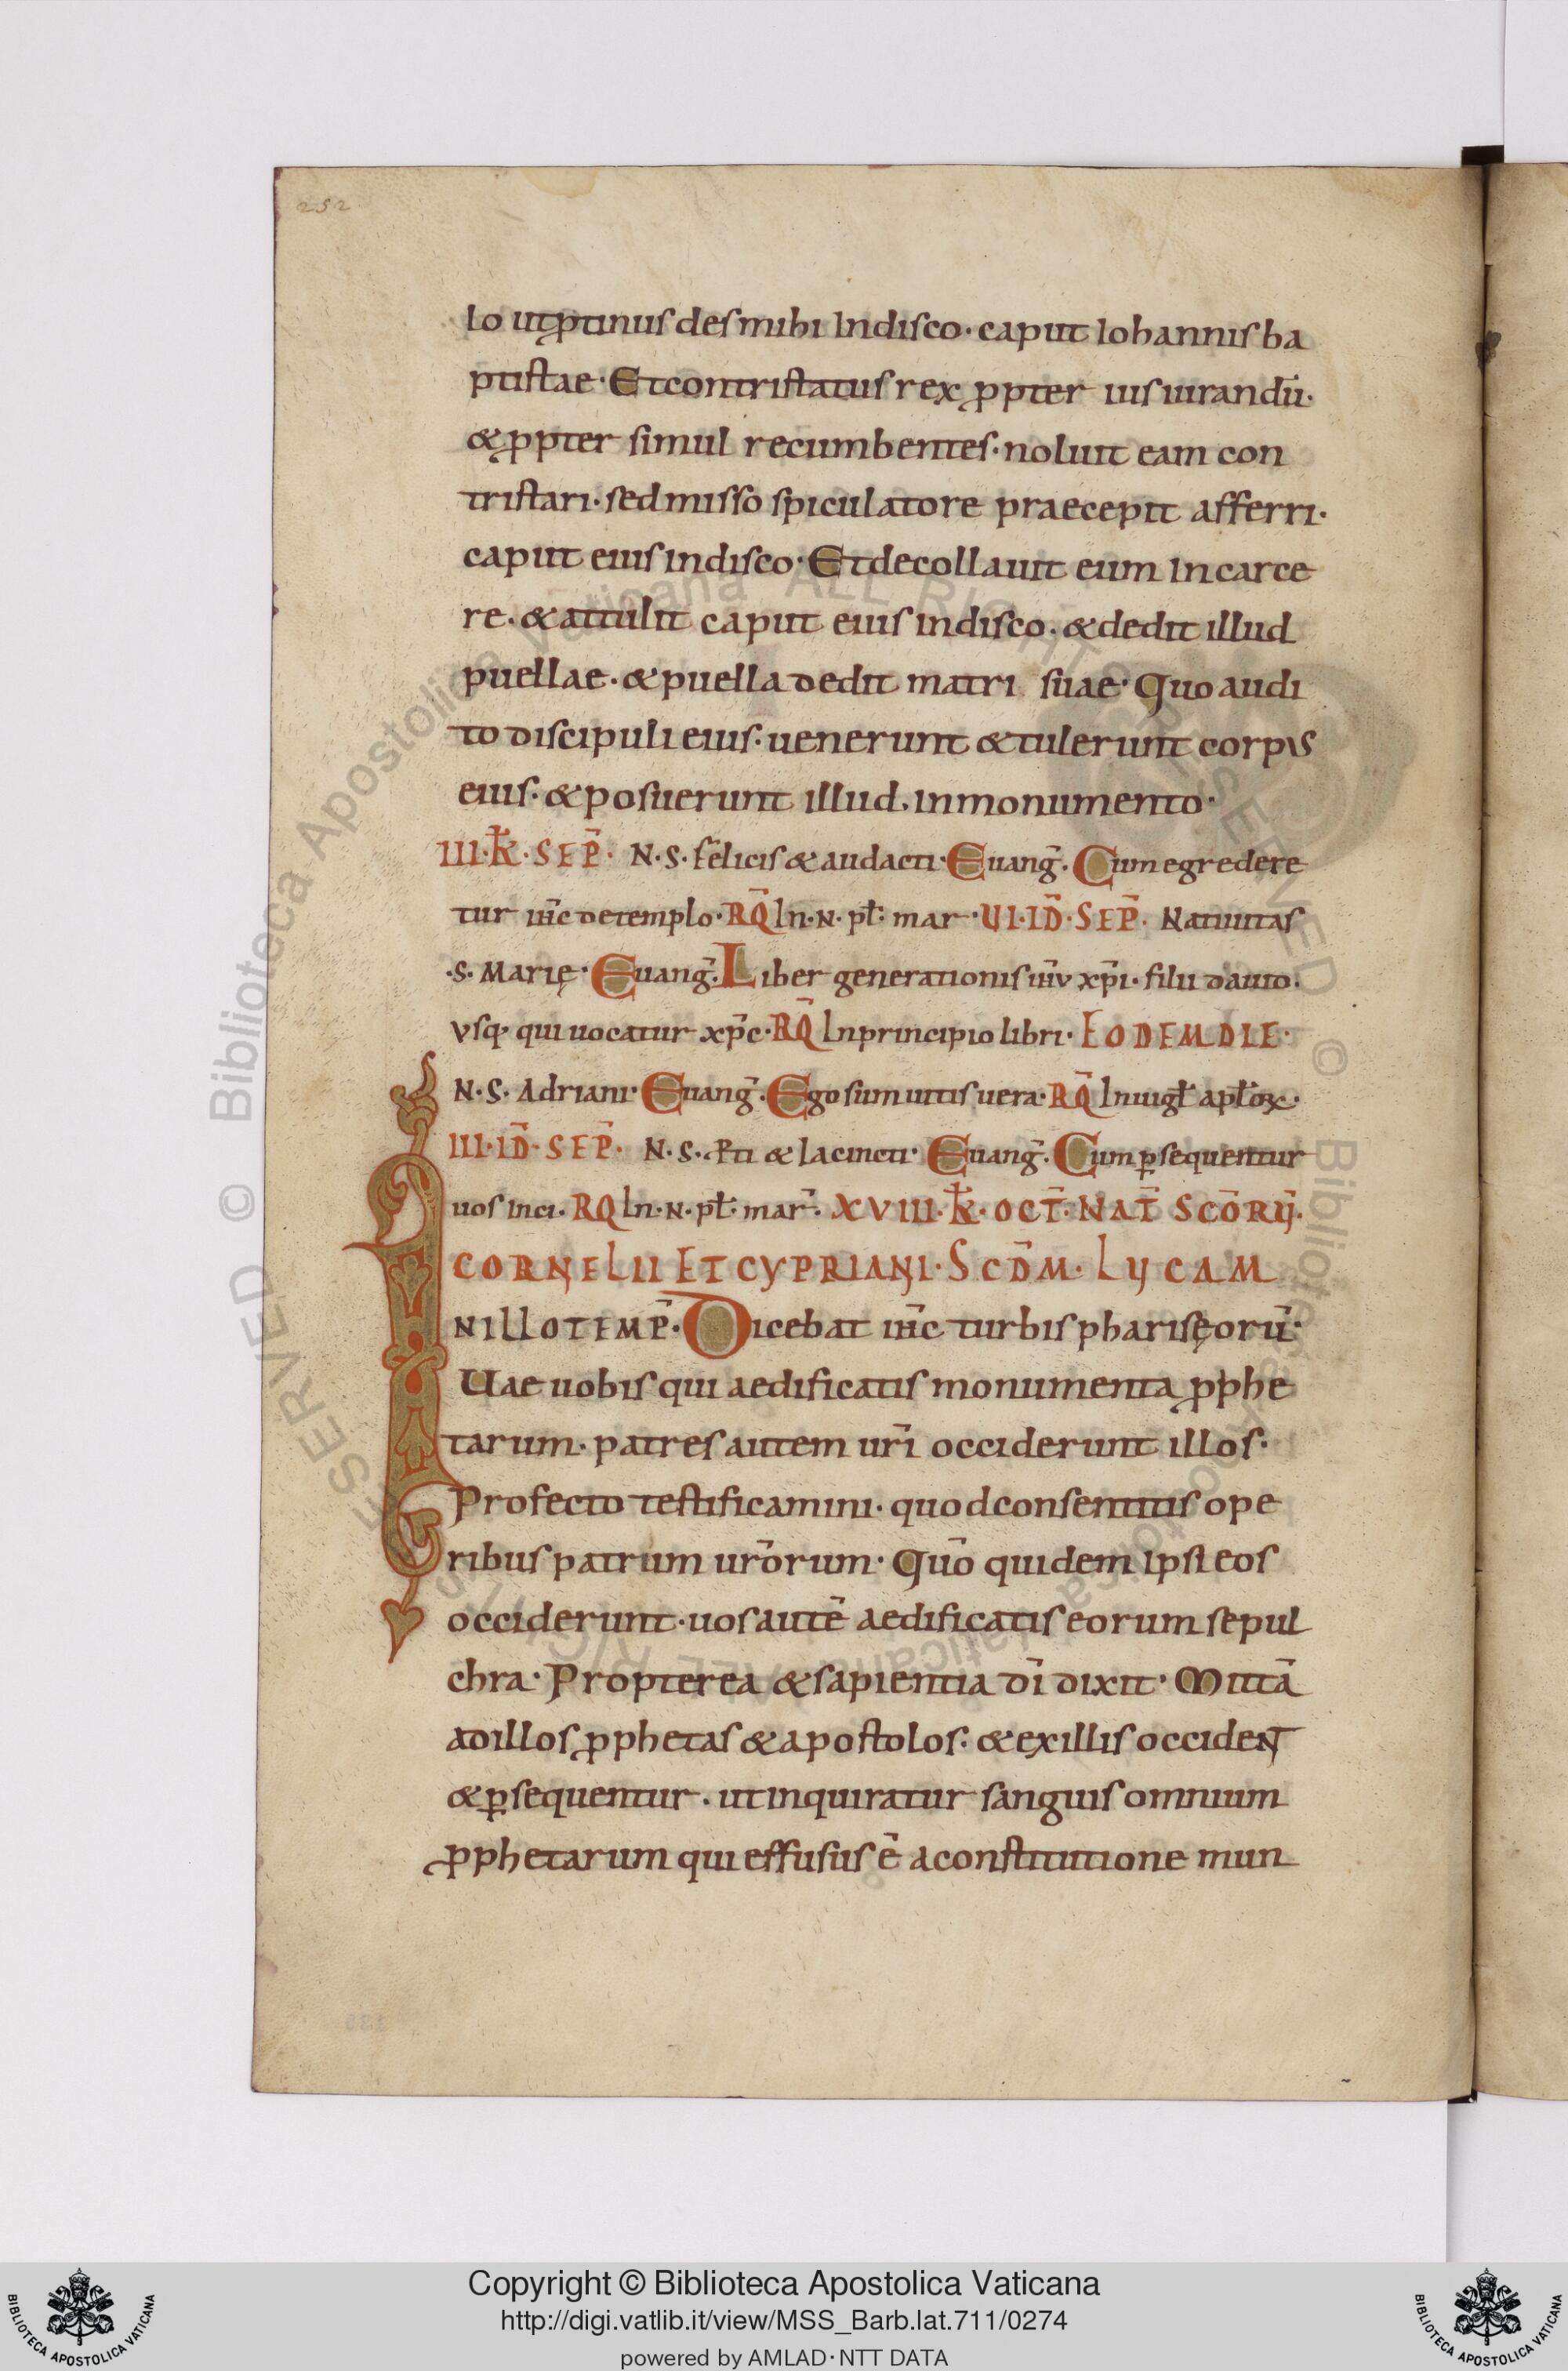 252
lo ut ꝓtinus des mihi In disco· caput Iohannis ba
ptistae· Et contristatus rex ꝓpter ius iurandū·
& ꝓpter simul recumbentes· noluit eam con
tristari· sed misso spiculatore praecepit afferri·
caput eius in disco· Et decollauit eum In carce
re· & attulit caput eius in disco· & dedit illud
puellae· & puella dedit matri suae· Quo audi
to discipuli eius· uenerunt & tulerunt corpus
eius· & posuerunt illud· in monumento·
III· K̄· SEP̄· N· S· felicis & audacti· Euang̅· Cum egredere
tur ih̅c de templo· RQ̄ In· N· pl̅· mar· VI· ID̄· SEP̄· Natiuitas
·S· Marię· Euang̅· Liber generationis ih̅v xp̅i· filii dauid·
vsq· qui uocatur xp̅c· RQ̄ In principio libri· EODEM DIE·
N· S· Adriani· Euang̅· Ego sum uitis uera· RQ̄ In uigl̅ apl̅oꝝ·
III· ID̄· SEP̄· N· S· Pti & Iacincti· Euang̅· Cum ꝑsequentur
uos Inci· RQ In· N· pl̅· mar̅· XVIII· K̄· OCT̄· NAT̄ SCŌRŲ·
CORNELII ET CYPRIANI· SCD̄M· LUCAM
NILLO TEMP̄· Dicebat ih̅c turbis pharisęorū·
Uae uobis qui aedificatis monumenta ꝓphe
tarum· patres autem ur̅i occiderunt illos·
Profecto testificamini· quod consentitis ope
ribus patrum ur̅orum· Quō quidem Ipsi eos
occiderunt· uos autē aedificatis eorum sepul
chra· Propterea & sapientia dī dixit· Mittā
ad illos ꝓphetas & apostolos· & ex illis occident
& ꝑsequentur· ut inquiratur sanguis omnium
ꝓphetarum qui effusus ē a constitutione mun
Copyright © Biblioteca Apostolica Vaticana
http://digi.vatlib.it/view/MSS_Barb.lat.711/0274
powered by AMLAD·NTT DATA